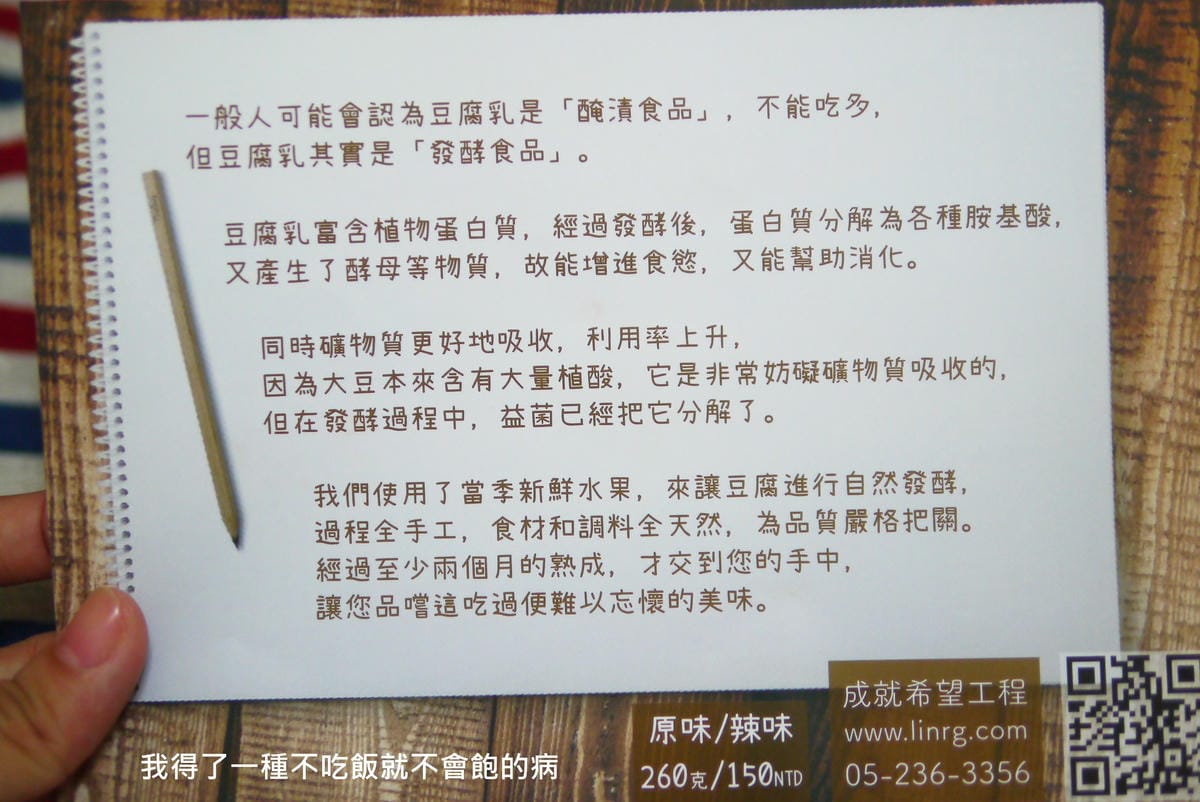 一般人可能會認為豆腐乳是「醃漬食品」，不能吃多，
但豆腐乳其實是「發酵食品」。
豆腐乳富含植物蛋白質，經過發酵後，蛋白質分解為各種胺基酸，
又產生了酵母等物質，故能增進食慾，又能幫助消化。
同時礦物質更好地吸收，利用率上升，
因為大豆本來含有大量植酸，它是非常妨礙礦物質吸收的，
但在發酵過程中，益菌已經把它分解了。
我們使用了當季新鮮水果，來讓豆腐進行自然發酵，
過程全手工，食材和調料全天然，為品質嚴格把關。
經過至少兩個月的熟成，才交到您的手中，
讓您品嚐這吃過便難以忘懷的美味。
原味/辣味
260克/150NTD
成就希望工程
www.linrg.com
05-236-3356
我得了一種不吃飯就不會飽的病